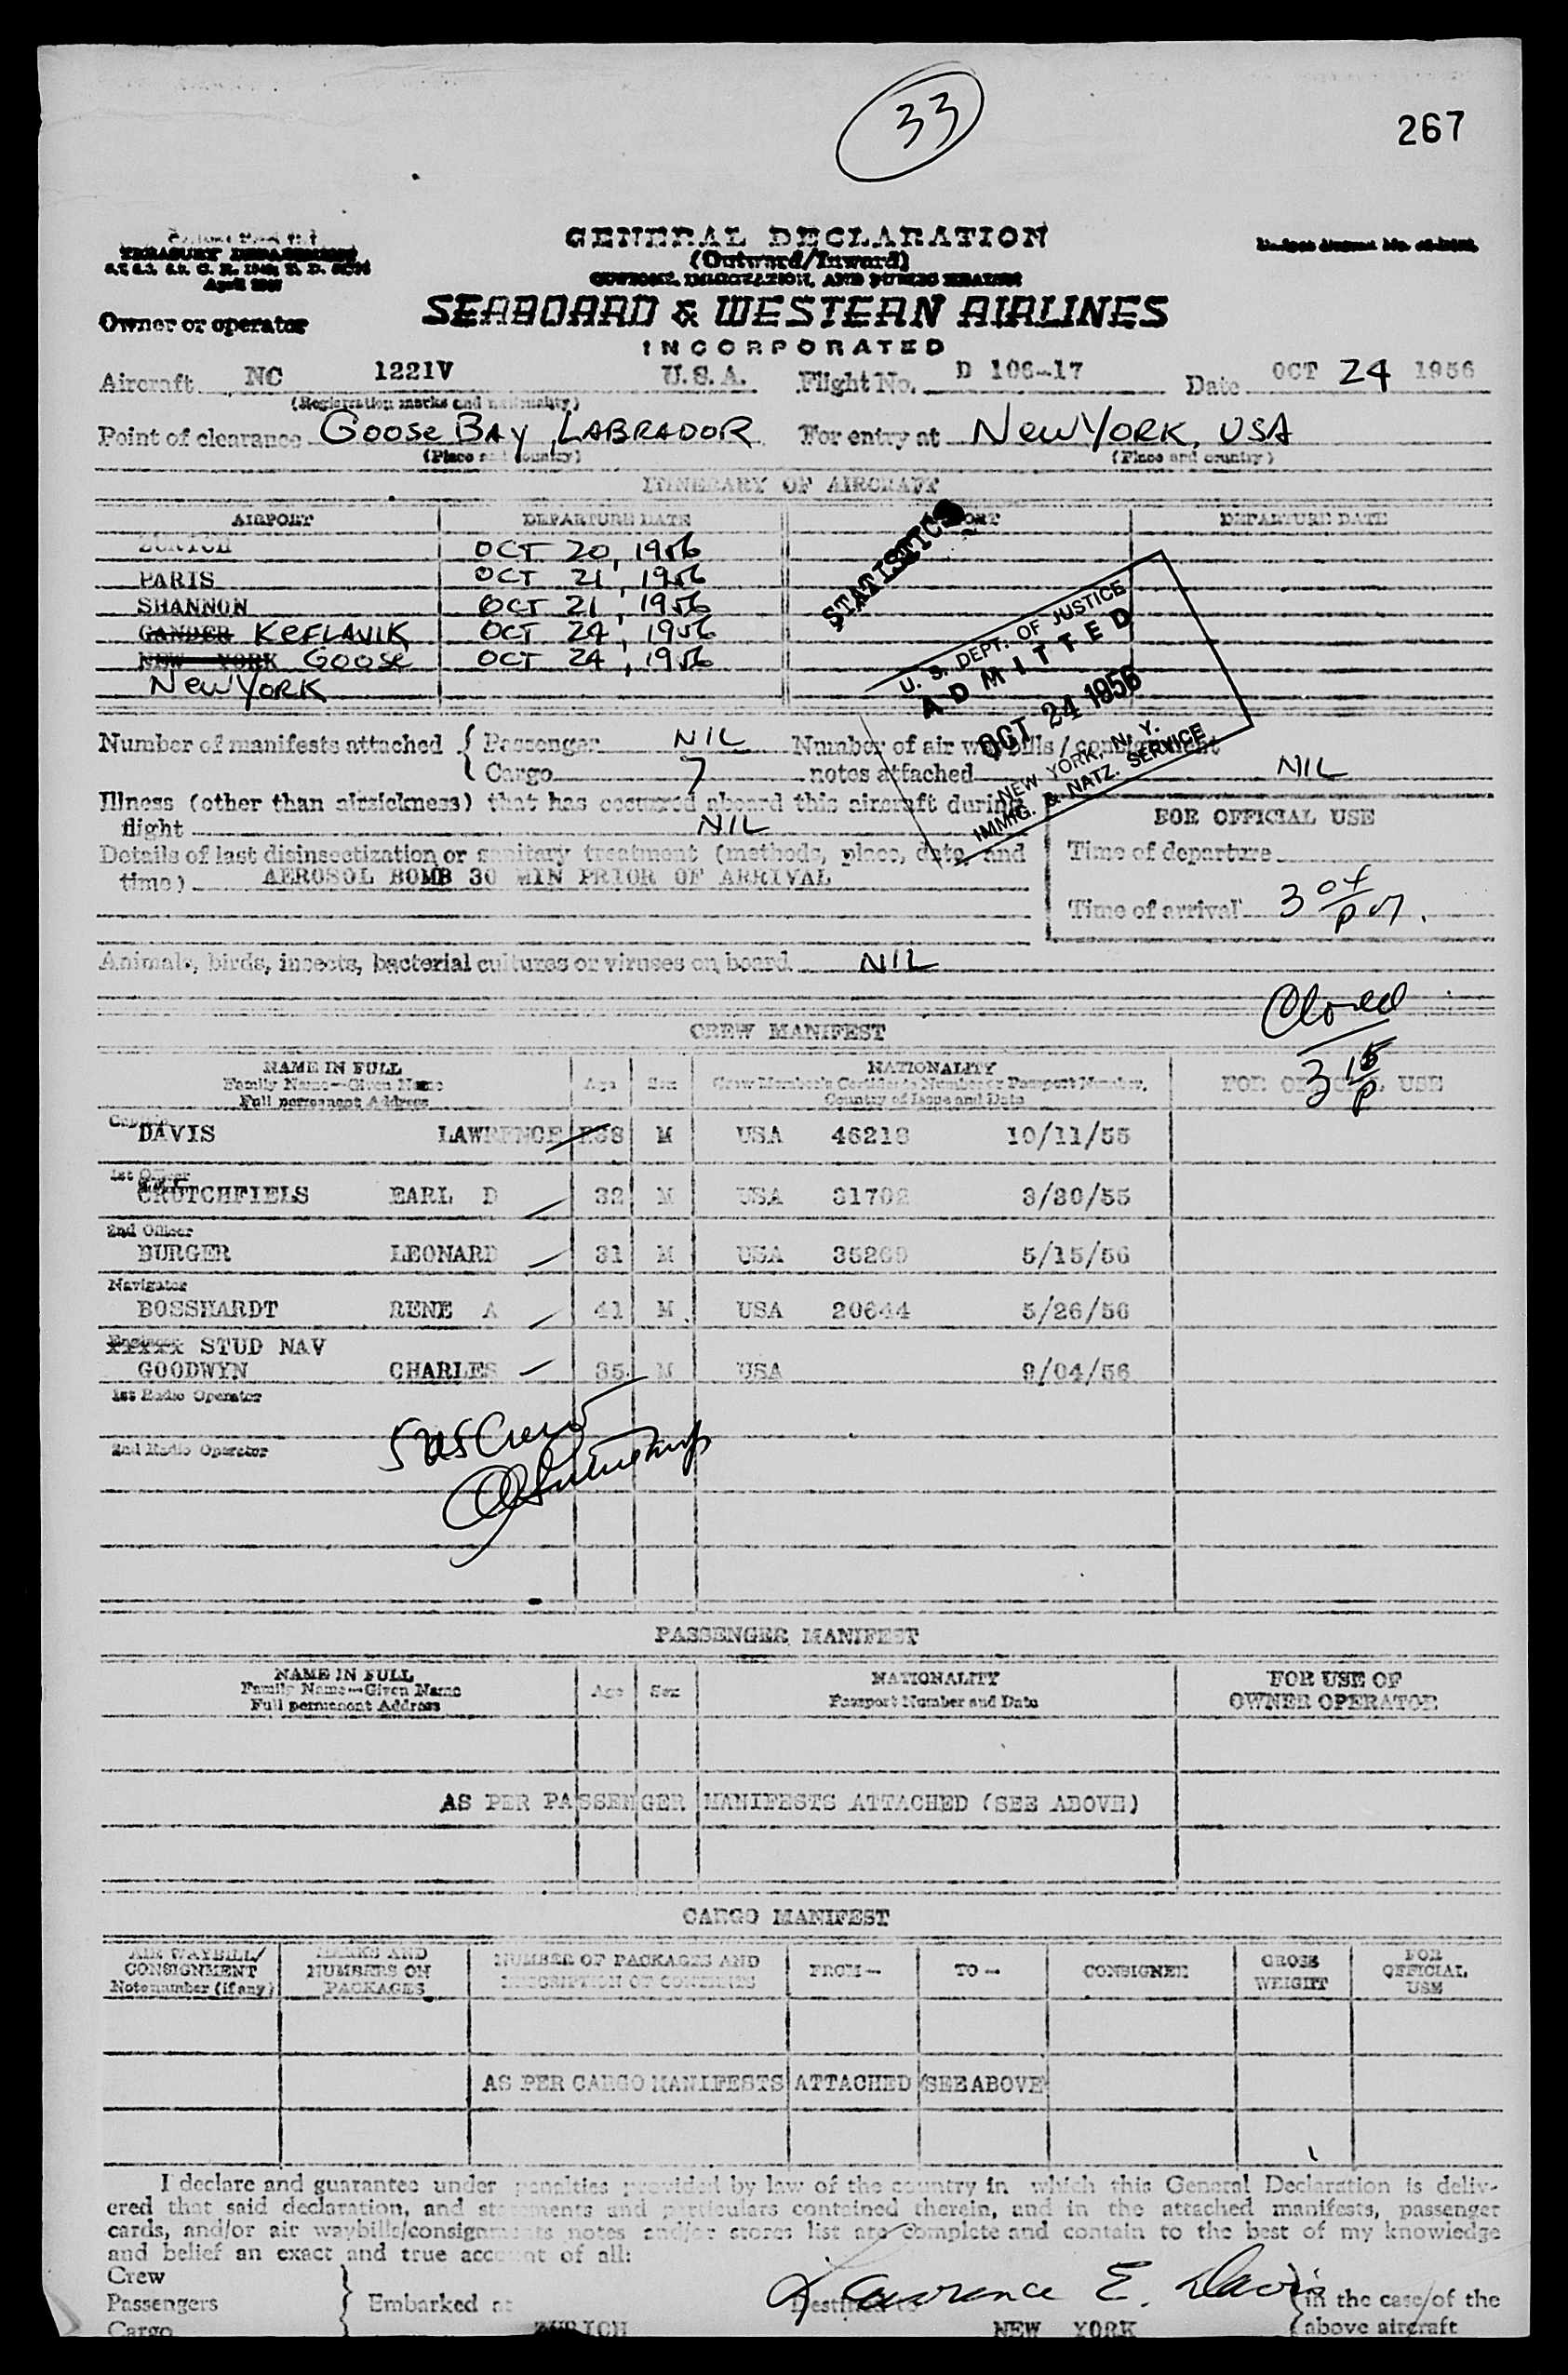 33
267
TREASURY DEPARTMENT
April
GENERAL DECLARATION
(Outward/Inward)
CUSTOMS, IMMIGRATION, AND PUBLIC HEALTH
Owner or operator
SEABOARD & WESTERN AIRLINES
INCORPORATED
Aircraft NC 1221V U.S.A. Flight No. D 106-17 Date OCT 24 1956
(Registration marks and nationality)
Point of clearance Goose Bay, LABRADOR For entry at New York, USA
(Place and country) (Place and country)
ITINERARY OF AIRCRAFT
AIRPORT DEPARTURE DATE AIRPORT DEPARTURE DATE
ZURICH OCT 20, 1956
PARIS OCT 21, 1956
SHANNON OCT 21, 1956
GANDER KEFLAVIK OCT 24, 1956
NEW YORK Goose OCT 24, 1956
New York
STATISTICS
U. S. DEPT. OF JUSTICE
ADMITTED
OCT 24 1956
NEW YORK, N. Y.
IMMIG. & NATZ. SERVICE
Number of manifests attached { Passenger NIL Number of air waybills/consignment
Cargo 7 notes attached NIL
Illness (other than airsickness) that has occurred aboard this aircraft during
flight NIL
FOR OFFICIAL USE
Details of last disinsectization or sanitary treatment (methods, place, date, and
time) AEROSOL BOMB 30 MIN PRIOR OF ARRIVAL
Time of departure
Time of arrival 3 04 pm.
Animals, birds, insects, bacterial cultures or viruses on board NIL
Closed
3 15 p
CREW MANIFEST
NAME IN FULL
Family Name—Given Name
Full permanent Address
Age Sex
NATIONALITY
Crew Member's Certificate Number or Passport Number,
Country of Issue and Date
FOR OFFICIAL USE
Captain
DAVIS LAWRENCE E 38 M USA 46218 10/11/55
1st Officer
CRUTCHFIELS EARL D 32 M USA 31702 3/30/55
2nd Officer
BURGER LEONARD 31 M USA 35269 5/15/56
Navigator
BOSSHARDT RENE A 41 M USA 20644 5/26/56
Engineer STUD NAV
GOODWYN CHARLES 35 M USA 9/04/56
1st Radio Operator
2nd Radio Operator
5 US Crew
PASSENGER MANIFEST
NAME IN FULL
Family Name—Given Name
Full permanent Address
Age Sex
NATIONALITY
Passport Number and Date
FOR USE OF
OWNER OPERATOR
AS PER PASSENGER MANIFESTS ATTACHED (SEE ABOVE)
CARGO MANIFEST
AIR WAYBILL/
CONSIGNMENT
Note number (if any)
MARKS AND
NUMBERS ON
PACKAGES
NUMBER OF PACKAGES AND
DESCRIPTION OF CONTENTS
FROM— TO— CONSIGNEE
GROSS
WEIGHT
FOR
OFFICIAL
USE
AS PER CARGO MANIFESTS ATTACHED (SEE ABOVE
I declare and guarantee under penalties provided by law of the country in which this General Declaration is deliv-
ered that said declaration, and statements and particulars contained therein, and in the attached manifests, passenger
cards, and/or air waybills/consignments notes and/or stores list are complete and contain to the best of my knowledge
and belief an exact and true account of all:
Crew
Passengers } Embarked at Destined to } in the case of the
Lawrence E. Davis
Cargo ZURICH NEW YORK { above aircraft